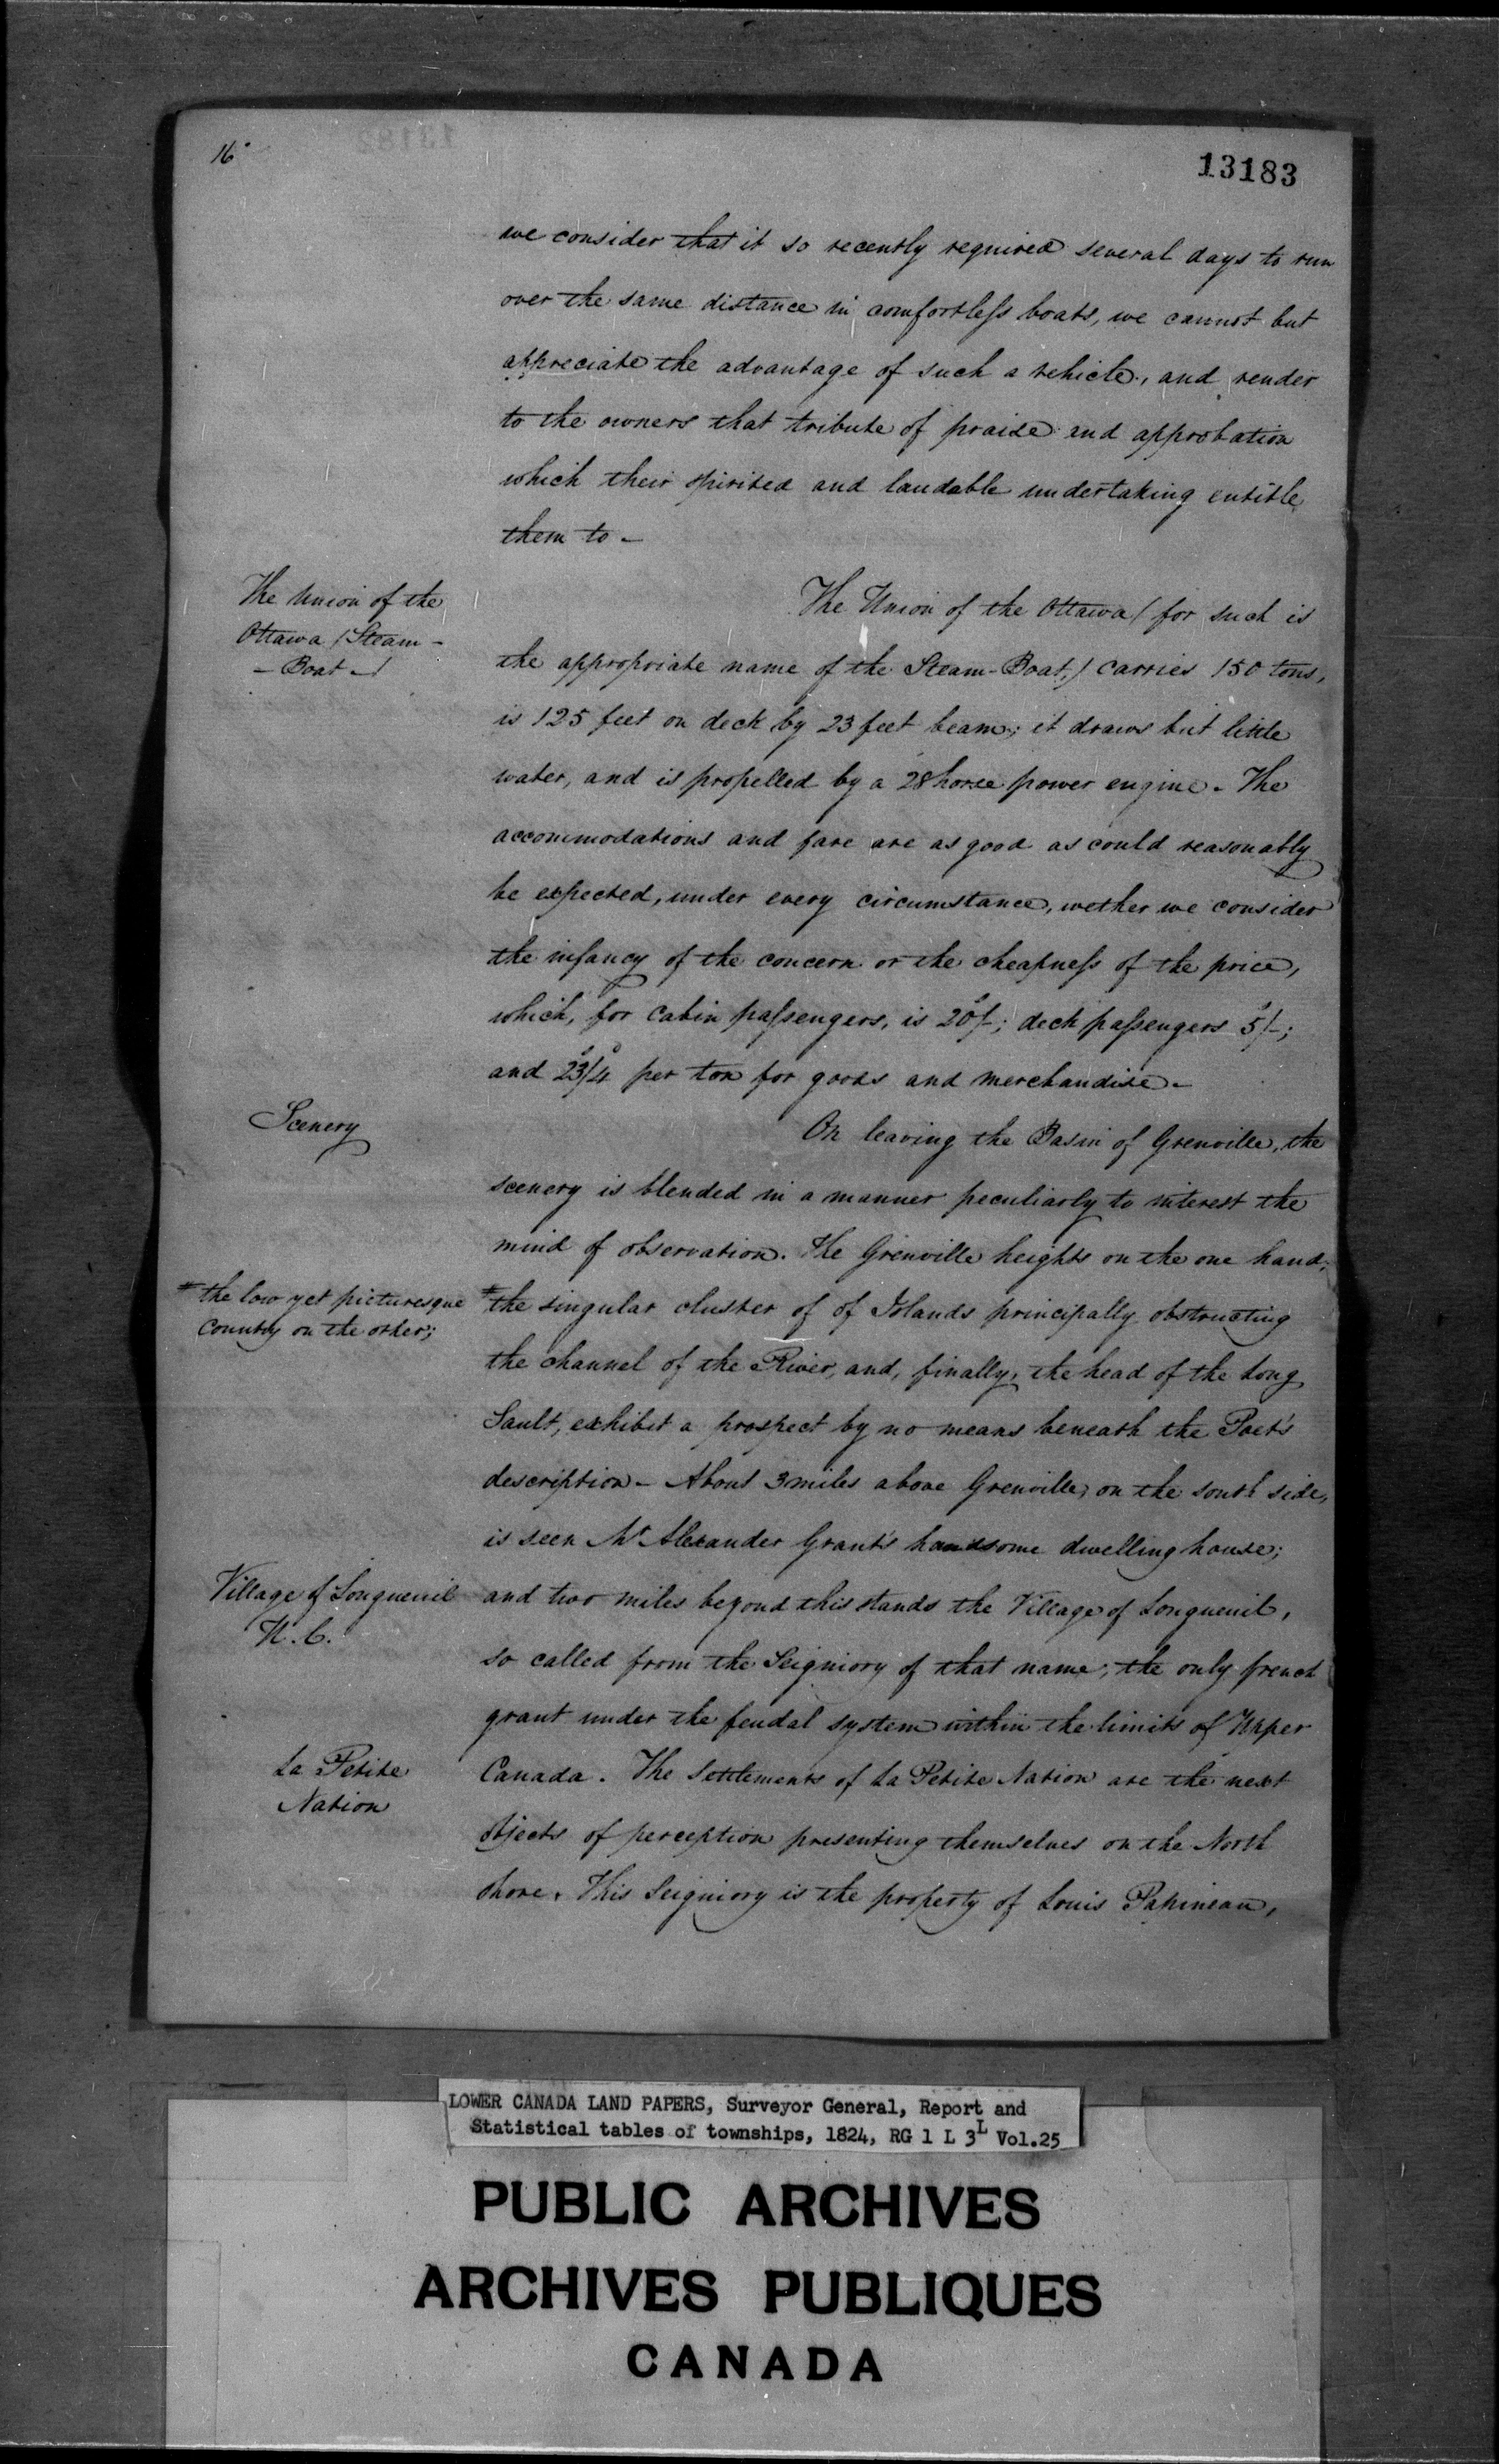 16
13183
we consider that it so recently required several days to run
over the same distance in comfortless boats, we cannot but
appreciate the advantage of such a vehicle, and render
to the owners that tribute of praise and approbation
which their spirited and laudable undertaking entitle
them to -
The Union of the
Ottawa (Steam-
- Boat -)
The Union of the Ottawa (for such is
the appropriate name of the Steam-Boat,) carries 150 tons,
is 125 feet on deck by 23 feet beam; it draws but little
water, and is propelled by a 28 horse power engine. The
accommodations and fare are as good as could reasonably
be expected, under every circumstance, wether we consider
the infancy of the concern or the cheapness of the price,
which, for Cabin passengers, is 20s/-; deck passengers 5s/-;
and 23s/4d per ton for goods and merchandise -
Scenery
On leaving the Basin of Grenville, the
scenery is blended in a manner peculiarly to interest the
mind of observation. The Grenville heights on the one hand;
# the low yet picturesque
Country on the other;
# the singular cluster of of Islands principally obstructing
the channel of the River, and, finally, the head of the Long
Sault, exhibit a prospect by no means beneath the Poet's
description - About 3 miles above Grenville, on the south side,
is seen Mr. Alexander Grant's handsome dwelling house;
Village of Longueuil
U.C.
and two miles beyond this stands the Village of Longueuil,
so called from the Seigniory of that name; the only french
grant under the feudal system within the limits of Upper
La Petite
Nation
Canada. The Settlements of La Petite Nation are the next
objects of perception presenting themselves on the North
shore. This Seigniory is the property of Louis Papineau,
LOWER CANADA LAND PAPERS, Surveyor General, Report and
Statistical tables of townships, 1824, RG 1 L 3L Vol.25
PUBLIC ARCHIVES
ARCHIVES PUBLIQUES
CANADA